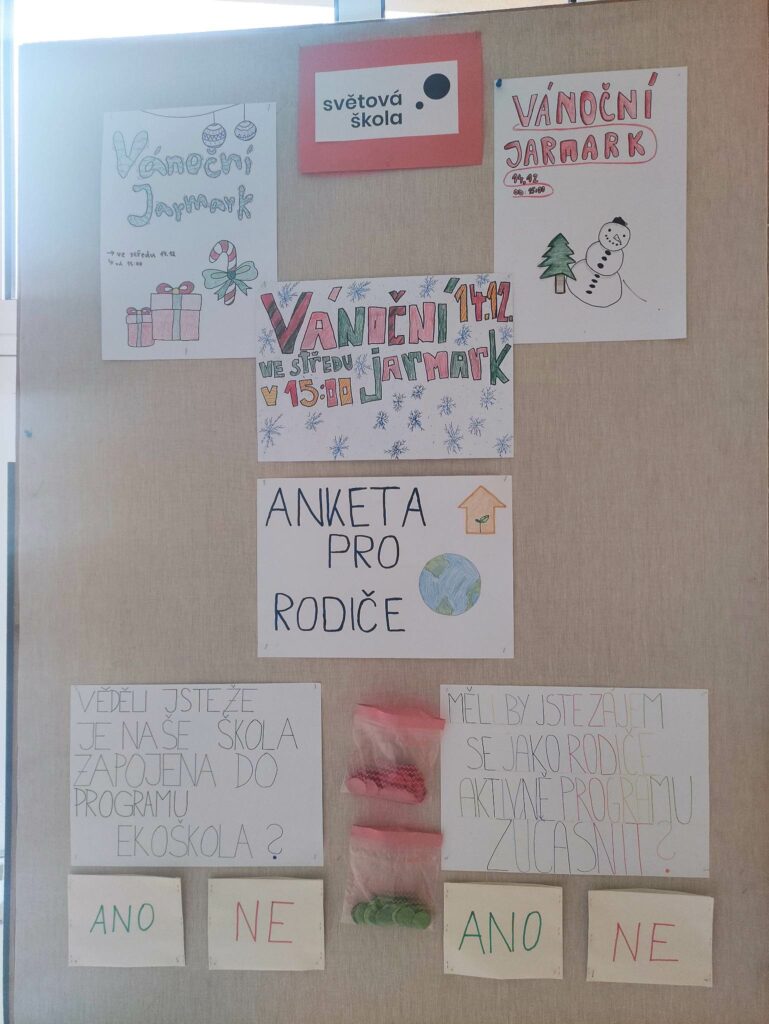 světová
škola
Vánoční
Jarmark
→ ve středu 14.12
↳ od 15:00
VÁNOČNÍ
JARMARK
14.12
od 15:00
VÁNOČNÍ 14.12.
VE STŘEDU jarmark
v 15:00
ANKETA
PRO
RODIČE
VĚDĚLI JSTE ŽE
JE NAŠE ŠKOLA
ZAPOJENA DO
PROGRAMU
EKOŠKOLA?
ANO
NE
MĚLI BY JSTE ZÁJEM
SE JAKO RODIČE
AKTIVNĚ PROGRAMU
ZÚČASNIT?
ANO
NE